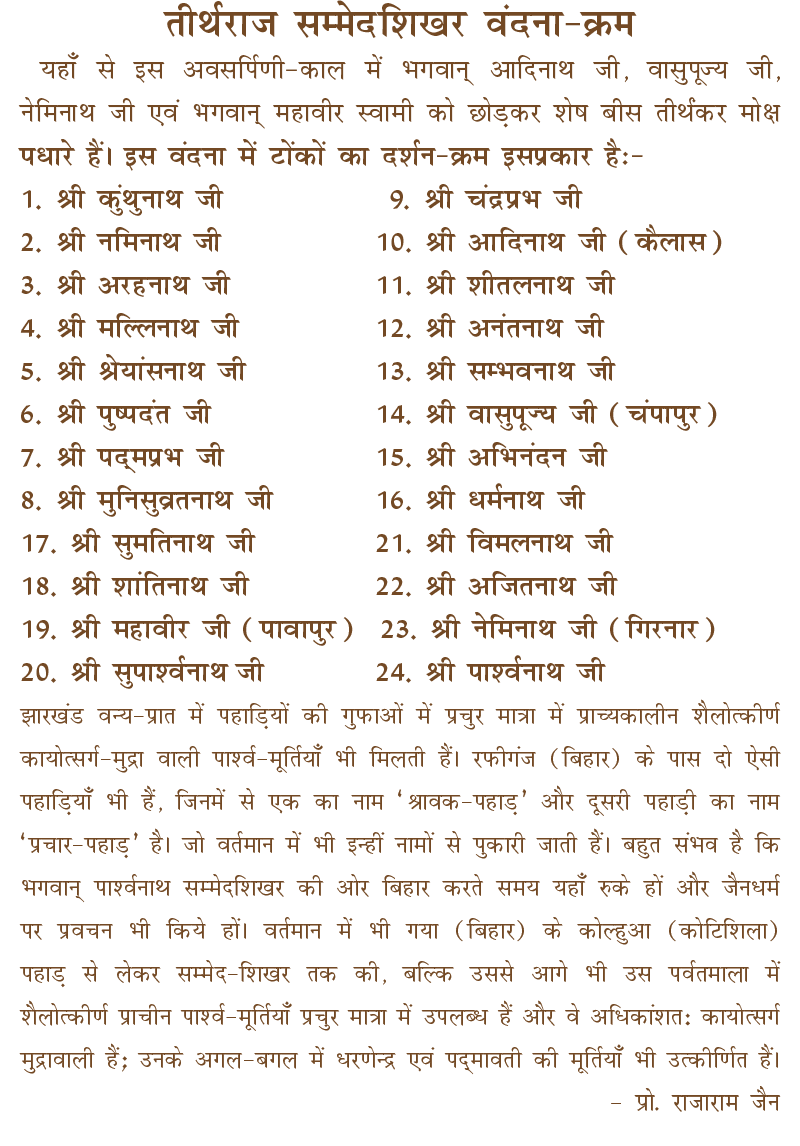 तीर्थराज सम्मेदशिखर वंदना-क्रम
यहाँ से इस अवसर्पिणी-काल में भगवान् आदिनाथ जी, वासुपूज्य जी,
नेमिनाथ जी एवं भगवान् महावीर स्वामी को छोड़कर शेष बीस तीर्थंकर मोक्ष
पधारे हैं। इस वंदना में टोंकों का दर्शन-क्रम इसप्रकार है:-
1. श्री कुंथुनाथ जी 9. श्री चंद्रप्रभ जी
2. श्री नमिनाथ जी 10. श्री आदिनाथ जी (कैलास)
3. श्री अरहनाथ जी 11. श्री शीतलनाथ जी
4. श्री मल्लिनाथ जी 12. श्री अनंतनाथ जी
5. श्री श्रेयांसनाथ जी 13. श्री सम्भवनाथ जी
6. श्री पुष्पदंत जी 14. श्री वासुपूज्य जी (चंपापुर)
7. श्री पद्‌मप्रभ जी 15. श्री अभिनंदन जी
8. श्री मुनिसुव्रतनाथ जी 16. श्री धर्मनाथ जी
17. श्री सुमतिनाथ जी 21. श्री विमलनाथ जी
18. श्री शांतिनाथ जी 22. श्री अजितनाथ जी
19. श्री महावीर जी (पावापुर) 23. श्री नेमिनाथ जी (गिरनार)
20. श्री सुपार्श्वनाथ जी 24. श्री पार्श्वनाथ जी
झारखंड वन्य-प्रात में पहाड़ियों की गुफाओं में प्रचुर मात्रा में प्राच्यकालीन शैलोत्कीर्ण
कायोत्सर्ग-मुद्रा वाली पार्श्व-मूर्तियाँ भी मिलती हैं। रफीगंज (बिहार) के पास दो ऐसी
पहाड़ियाँ भी हैं, जिनमें से एक का नाम ‘श्रावक-पहाड़’ और दूसरी पहाड़ी का नाम
‘प्रचार-पहाड़’ है। जो वर्तमान में भी इन्हीं नामों से पुकारी जाती हैं। बहुत संभव है कि
भगवान् पार्श्वनाथ सम्मेदशिखर की ओर बिहार करते समय यहाँ रुके हों और जैनधर्म
पर प्रवचन भी किये हों। वर्तमान में भी गया (बिहार) के कोल्हुआ (कोटिशिला)
पहाड़ से लेकर सम्मेद-शिखर तक की, बल्कि उससे आगे भी उस पर्वतमाला में
शैलोत्कीर्ण प्राचीन पार्श्व-मूर्तियाँ प्रचुर मात्रा में उपलब्ध हैं और वे अधिकांशत: कायोत्सर्ग
मुद्रावाली हैं; उनके अगल-बगल में धरणेन्द्र एवं पद्‌मावती की मूर्तियाँ भी उत्कीर्णित हैं।
- प्रो. राजाराम जैन